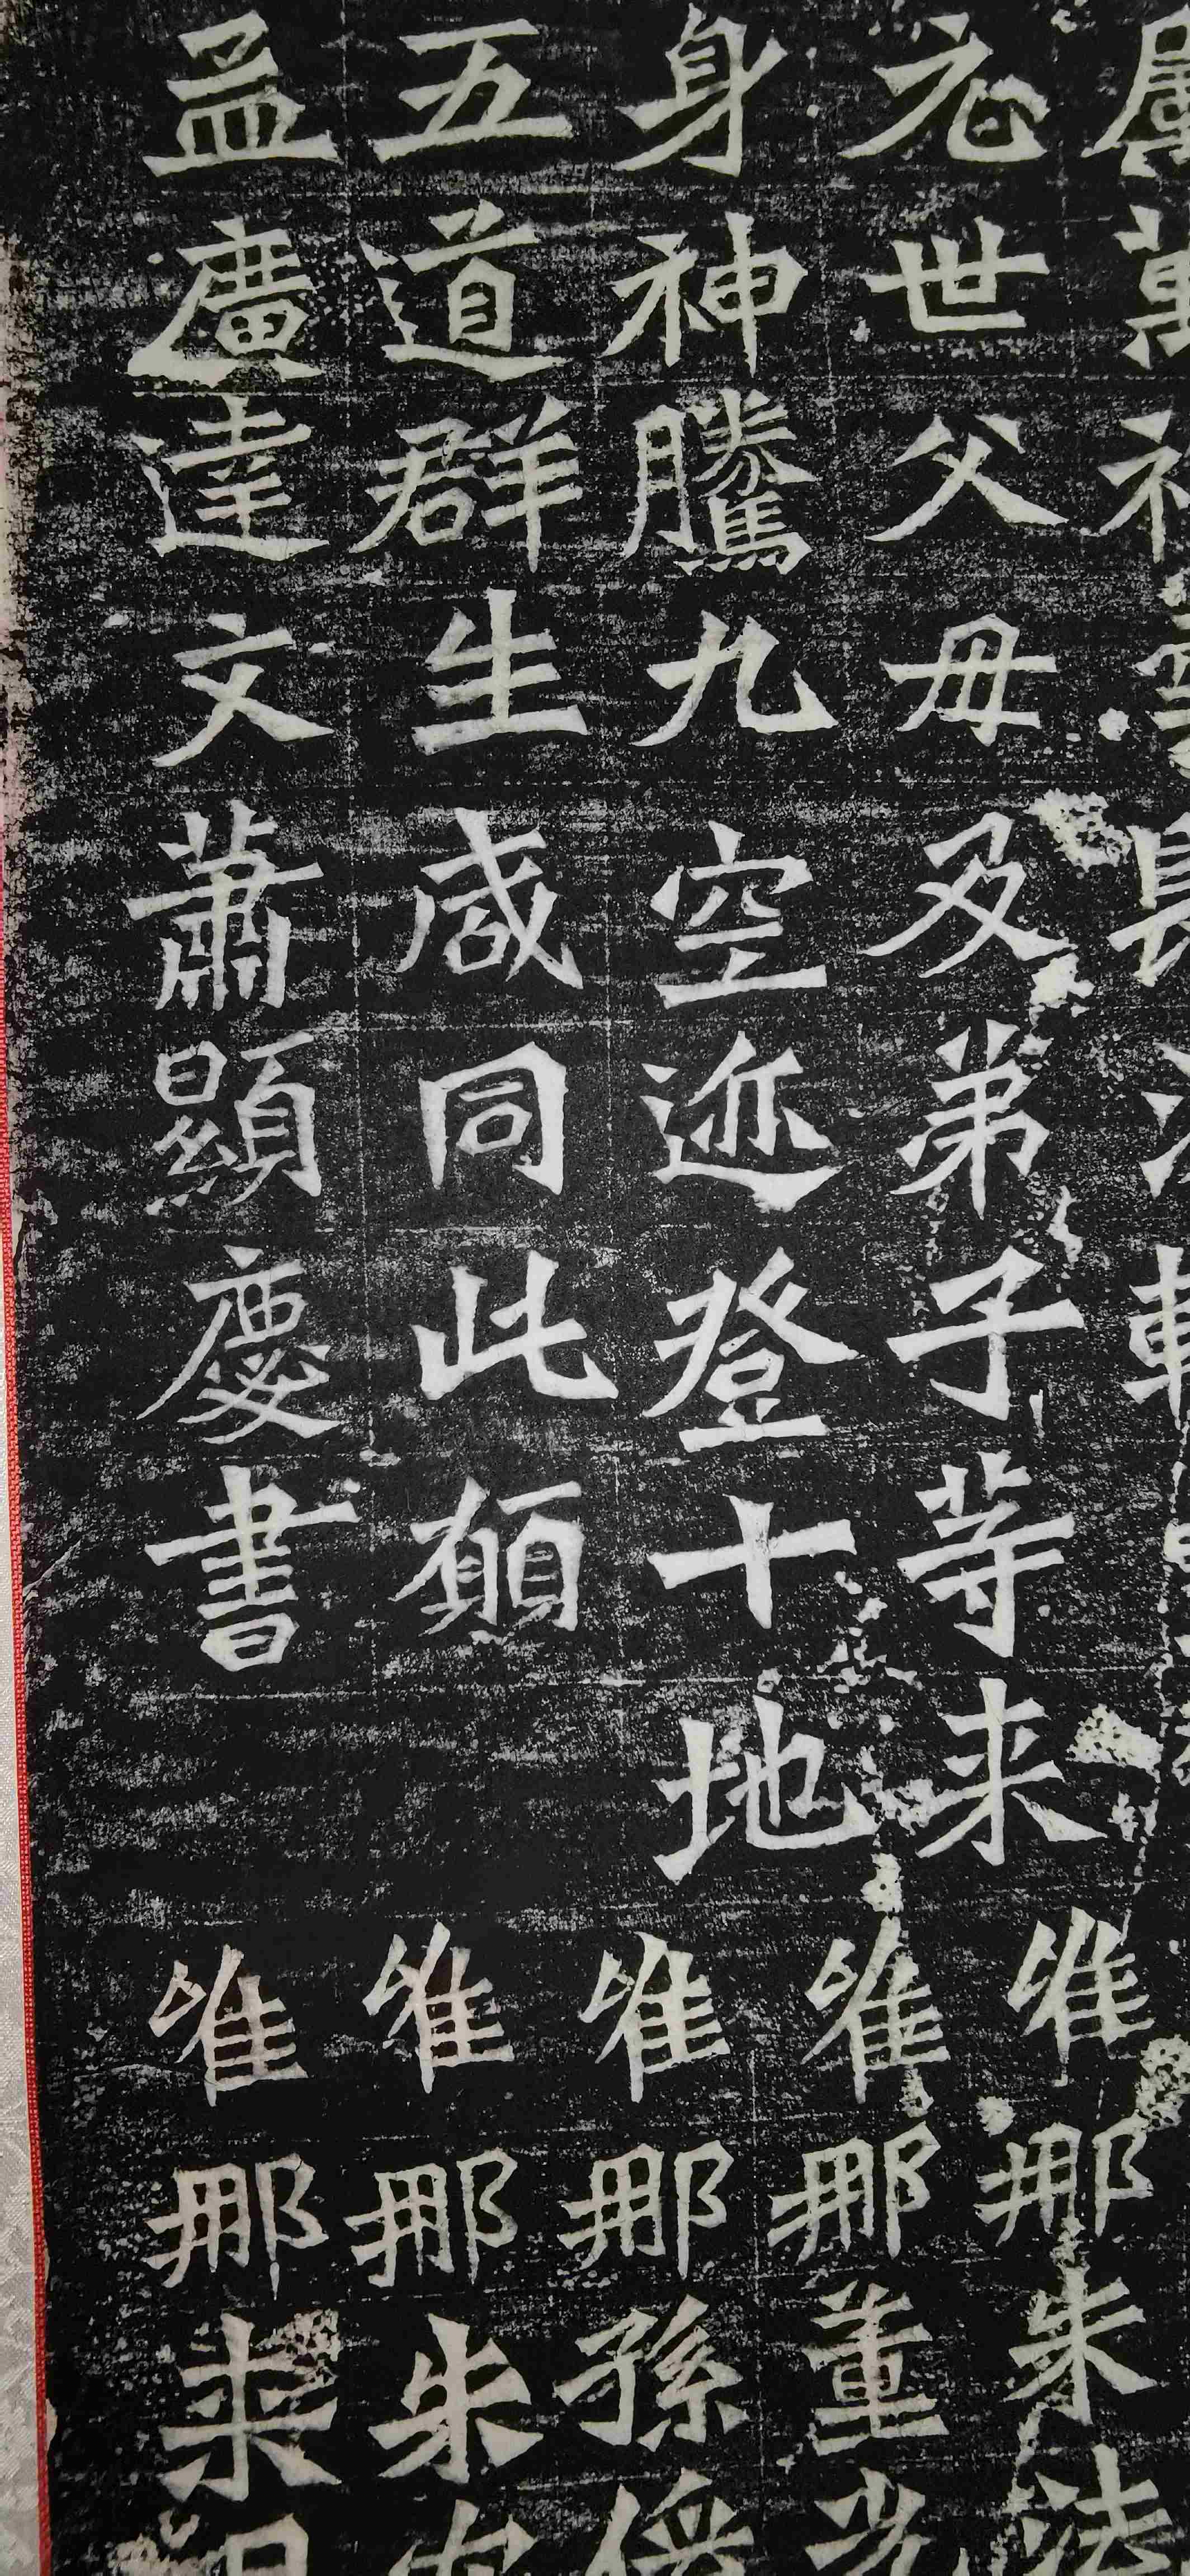 屬萬
元世父母及弟子等来
身神騰九空迹登十地
五道群生咸同此願
孟廣達文蕭顯慶書
唯那朱法
唯那董光
唯那孫俊
唯那朱
唯那来